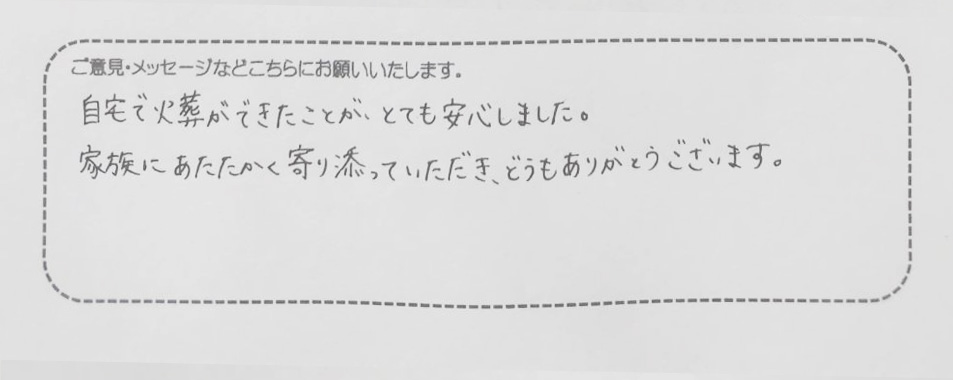 ご意見・メッセージなどこちらにお願いいたします。
自宅で火葬ができたことが、とても安心しました。
家族にあたたかく寄り添っていただき、どうもありがとうございます。